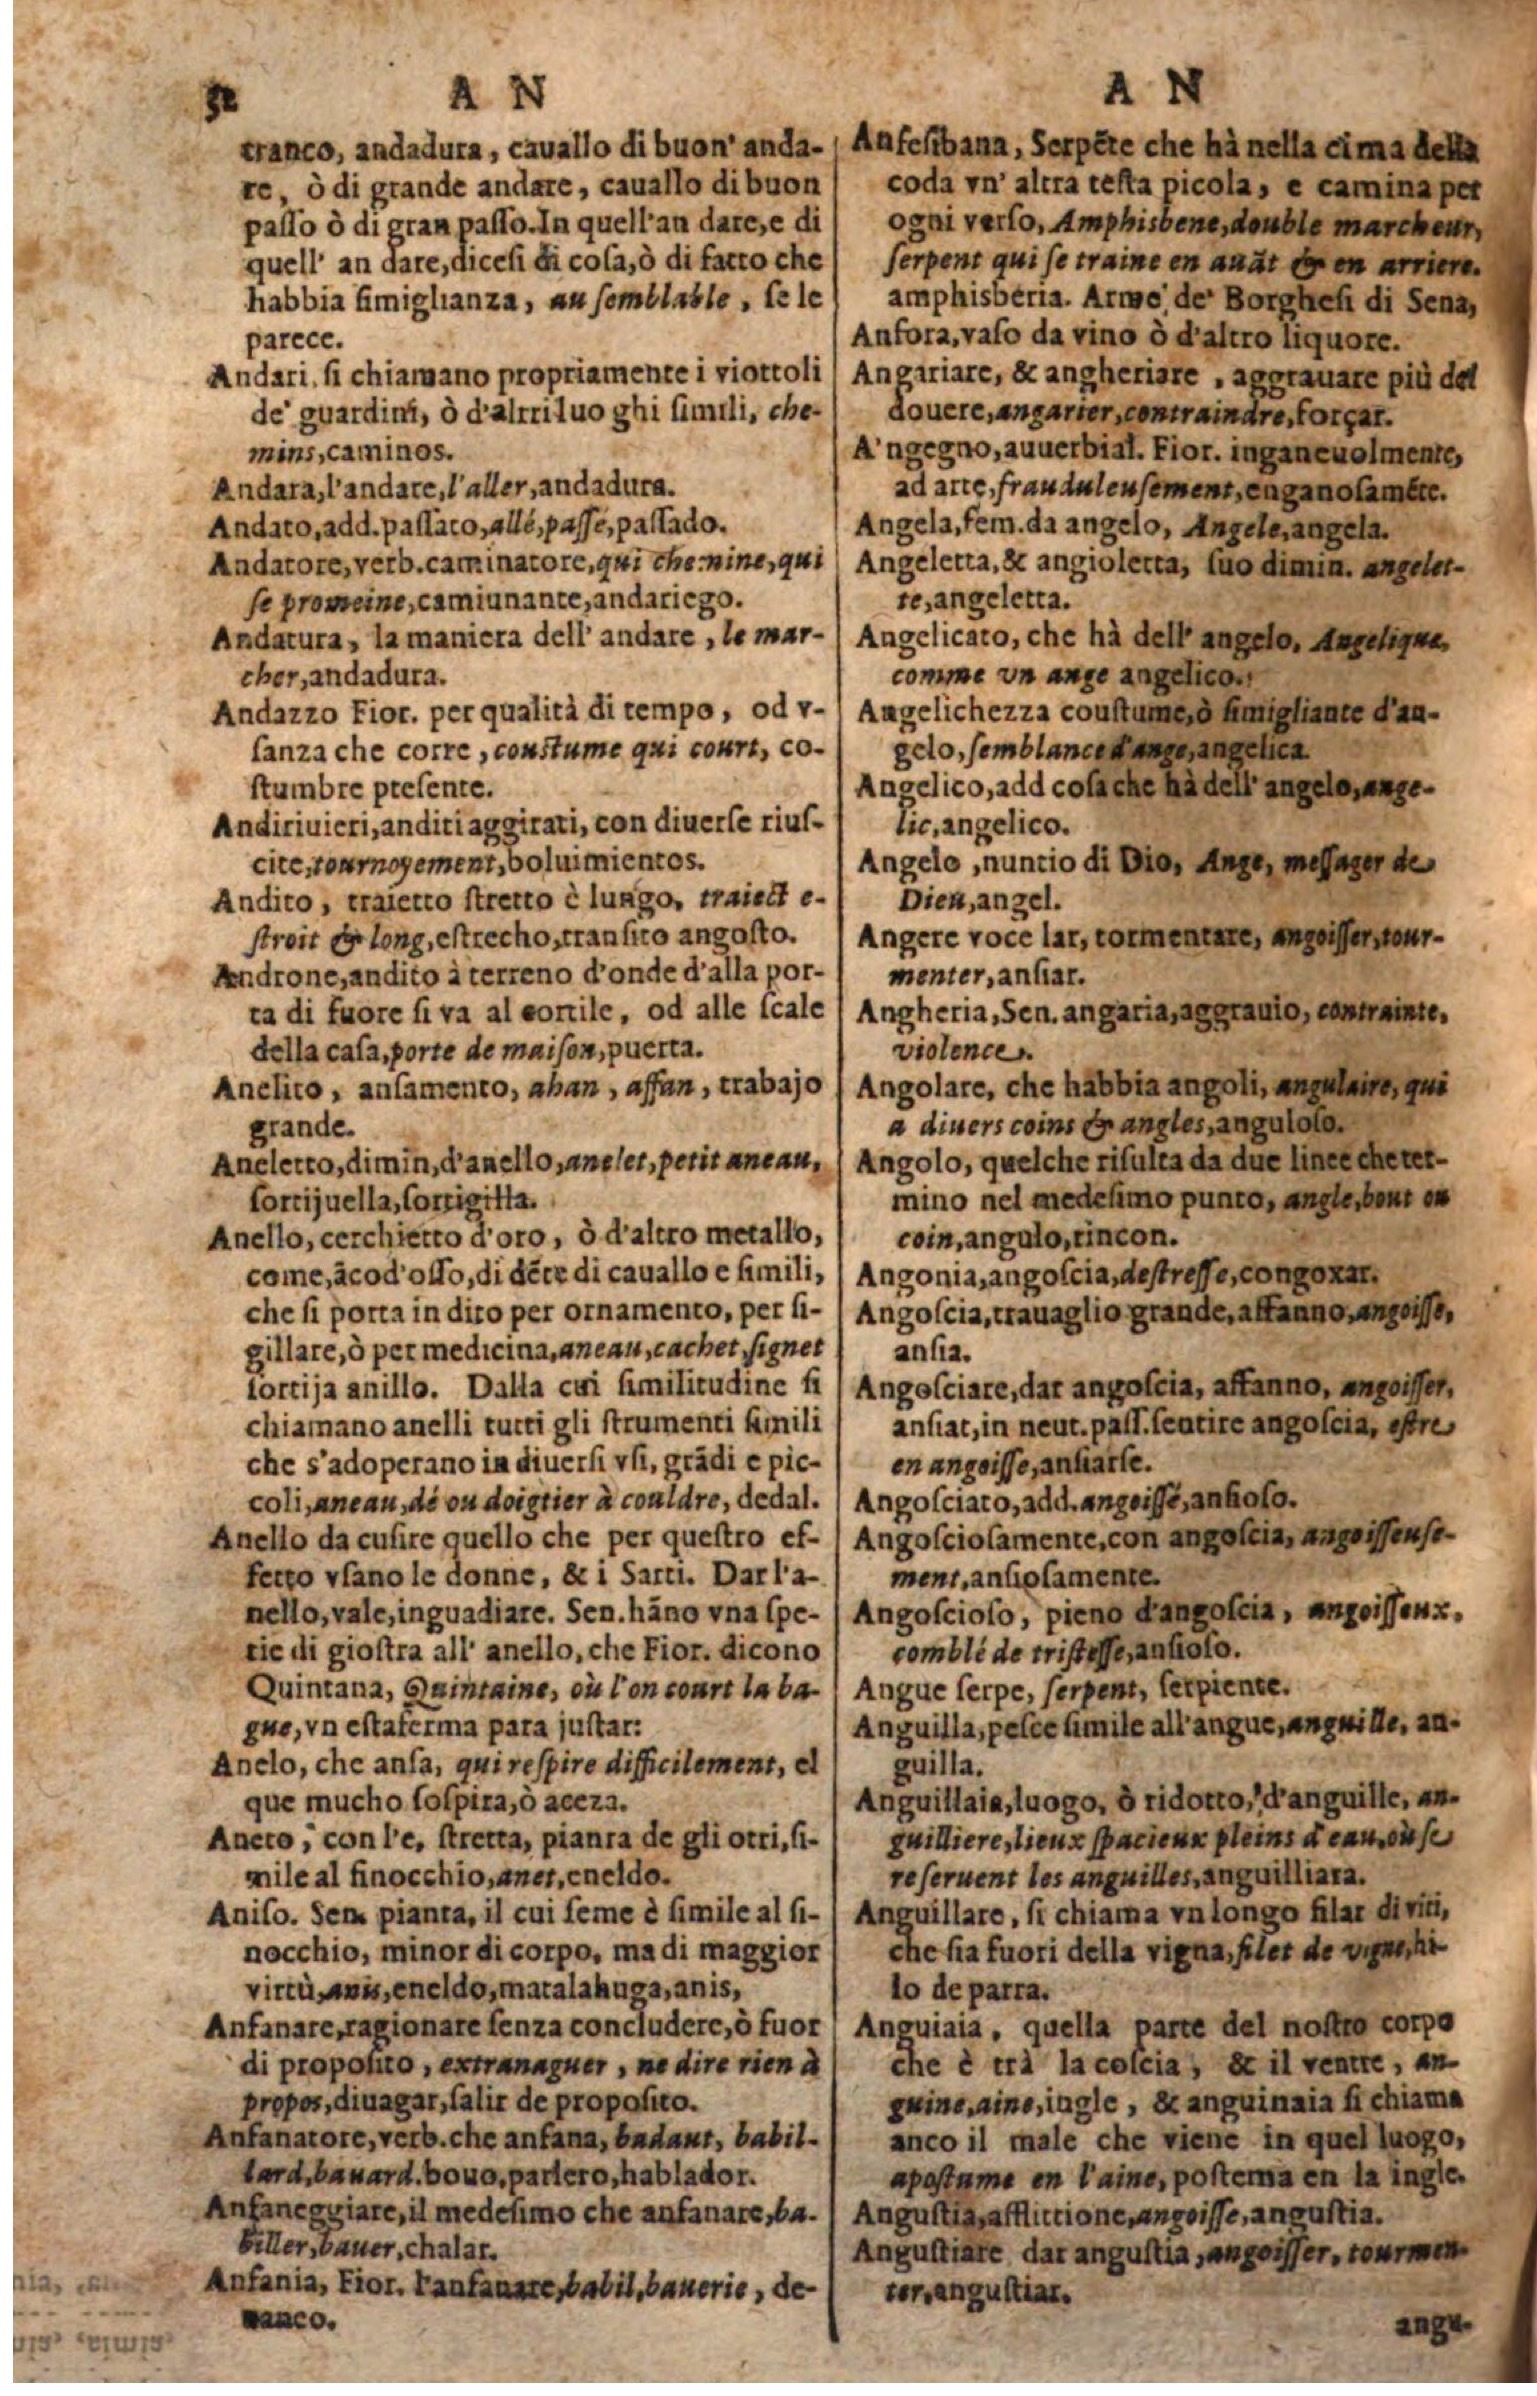 52
A N
A N
tranco, andadura, cauallo di buon' anda-
re, ò di grande andare, cauallo di buon
passo ò di gran passo. In quell'an dare, e di
quell' an dare, dicesi di cosa, ò di fatto che
habbia simiglianza, au semblable, se le
parece.
Andari. si chiamano propriamente i viottoli
de' guardini, ò d'altri luo ghi simili, che-
mins, caminos.
Andara, l'andare, l'aller, andadura.
Andato, add. passato, allé, passé, passado.
Andatore, verb. caminatore, qui chemine, qui
se promeine, camiunante, andariego.
Andatura, la maniera dell' andare, le mar-
cher, andadura.
Andazzo Fior. per qualità di tempo, od v-
sanza che corre, coustume qui court, co-
stumbre presente.
Andiriuieri, anditi aggirati, con diuerse rius-
cite, tournoyement, boluimientos.
Andito, traietto stretto è lungo, traiect e-
stroit & long, estrecho, transito angosto.
Androne, andito à terreno d'onde d'alla por-
ta di fuore si va al cortile, od alle scale
della casa, porte de maison, puerta.
Anelito, ansamento, ahan, affan, trabajo
grande.
Aneletto, dimin, d'anello, anelet, petit aneau,
sortijuella, sortigilla.
Anello, cerchietto d'oro, ò d'altro metallo,
come, ãco d'osso, di dẽte di cauallo e simili,
che si porta in dito per ornamento, per si-
gillare, ò per medicina, aneau, cachet, signet
sortija anillo. Dalla cui similitudine si
chiamano anelli tutti gli strumenti simili
che s'adoperano in diuersi vsi, grãdi e pic-
coli, aneau, dé ou doigtier à couldre, dedal.
Anello da cusire quello che per questro ef-
fetto vsano le donne, & i Sarti. Dar l'a-
nello, vale, inguadiare. Sen. hãno vna spe-
tie di giostra all' anello, che Fior. dicono
Quintana, Quintaine, où l'on court la ba-
gue, vn estaferma para justar:
Anelo, che ansa, qui respire difficilement, el
que mucho sospira, ò aceza.
Aneto, con l'e, stretta, pianra de gli otri, si-
mile al finocchio, anet, eneldo.
Aniso. Sen. pianta, il cui seme è simile al si-
nocchio, minor di corpo, ma di maggior
virtù, anis, eneldo, matalahuga, anis,
Anfanare, ragionare senza concludere, ò fuor
di proposito, extranaguer, ne dire rien à
propos, diuagar, salir de proposito.
Anfanatore, verb. che anfana, badaut, babil-
lard, bauard. bouo, parlero, hablador.
Anfaneggiare, il medesimo che anfanare, ba-
biller, bauer, chalar.
Anfania, Fior. l'anfanare, babil, bauerie, de-
nanco.
Anfesibana, Serpẽte che hà nella cima della
coda vn' altra testa picola, e camina per
ogni verso, Amphisbene, double marcheur,
serpent qui se traine en auãt & en arriere.
amphisberia. Arme de' Borghesi di Sena,
Anfora, vaso da vino ò d'altro liquore.
Angariare, & angheriare, aggrauare più del
douere, angarier, contraindre, forçar.
A'ngegno, auuerbial. Fior. inganeuolmente,
ad arte, frauduleusement, enganosamẽte.
Angela, fem. da angelo, Angele, angela.
Angeletta, & angioletta, suo dimin. angelet-
te, angeletta.
Angelicato, che hà dell' angelo, Angelique,
comme vn ange angelico.
Angelichezza coustume, ò simigliante d'an-
gelo, semblance d'ange, angelica.
Angelico, add cosa che hà dell' angelo, ange-
lic, angelico.
Angelo, nuntio di Dio, Ange, messager de
Dieu, angel.
Angere voce lat, tormentare, angoisser, tour-
menter, ansiar.
Angheria, Sen. angaria, aggrauio, contrainte,
violence.
Angolare, che habbia angoli, angulaire, qui
a diuers coins & angles, anguloso.
Angolo, quelche risulta da due linee che ter-
mino nel medesimo punto, angle, bout ou
coin, angulo, rincon.
Angonia, angoscia, destresse, congoxar.
Angoscia, trauaglio grande, affanno, angoisse,
ansia.
Angosciare, dar angoscia, affanno, angoisser,
ansiar, in neut. pass. sentire angoscia, estre
en angoisse, ansiarse.
Angosciato, add. angoissé, ansioso.
Angosciosamente, con angoscia, angoisseuse-
ment, ansiosamente.
Angoscioso, pieno d'angoscia, angoisseux,
comblé de tristesse, ansioso.
Angue serpe, serpent, serpiente.
Anguilla, pesce simile all'angue, anguille, an-
guilla.
Anguillaia, luogo, ò ridotto, d'anguille, an-
guilliere, lieux spacieux pleins d'eau, où se
reseruent les anguilles, anguilliara.
Anguillare, si chiama vn longo filar di viti,
che sia fuori della vigna, filet de vigne, hi-
lo de parra.
Anguiaia, quella parte del nostro corpo
che è trà la coscia, & il ventre, an-
guine, aine, ingle, & anguinaia si chiama
anco il male che viene in quel luogo,
apostume en l'aine, postema en la ingle.
Angustia, afflittione, angoisse, angustia.
Angustiare dar angustia, angoisser, tourmen-
ter, angustiar.
angu-